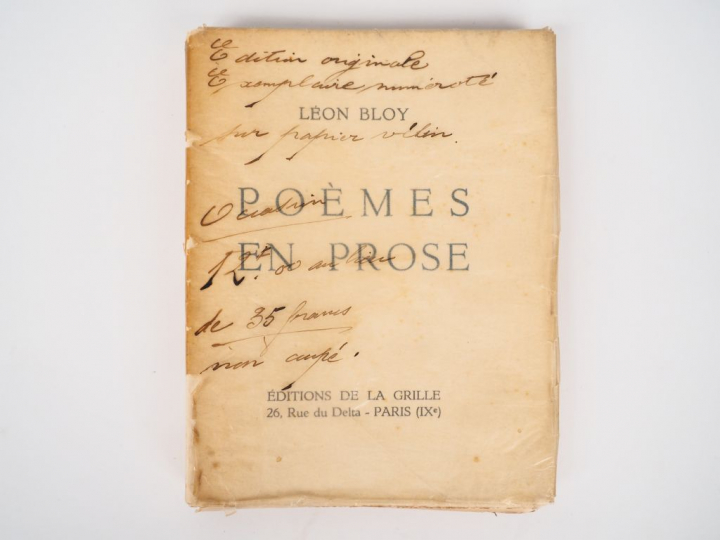 Edition originale
Exemplaire numéroté
LÉON BLOY
sur papier vélin.
POÈMES
Occasion
EN PROSE
12f.00 au lieu
de 35 francs
non coupé.
ÉDITIONS DE LA GRILLE
26, Rue du Delta - PARIS (IXe)